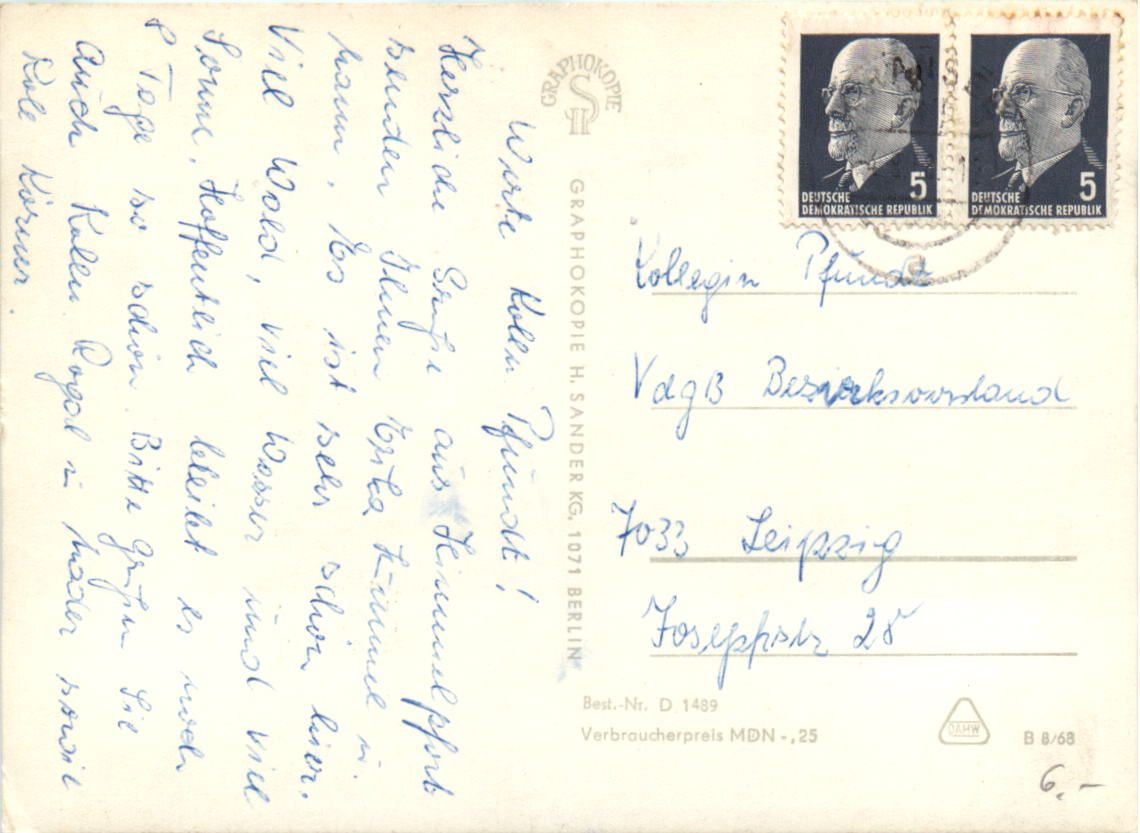 Werte Kolln Pfundt!
Herzliche Grüße aus Himmelpfort
sendet Ihnen Erika Kümmel u.
mann. Es ist sehr schön hier.
Viel Wald, viel Wasser und viel
Sonne. Hoffentlich bleibt es noch
8 Tage so schön. Bitte grüßen Sie
auch Kolln. Rogol u. sowie
Kolln Körner.
GRAPHOKOPIE
H S
GRAPHOKOPIE H. SANDER KG, 1071 BERLIN
DEUTSCHE
DEMOKRATISCHE REPUBLIK
5
DEUTSCHE
DEMOKRATISCHE REPUBLIK
5
Kollegin Pfundt
VdgB Bezirksvorstand
7033 Leipzig
Josephstr 28
Best.-Nr. D 1489
Verbraucherpreis MDN -,25
DAHW
B 8/68
6.-